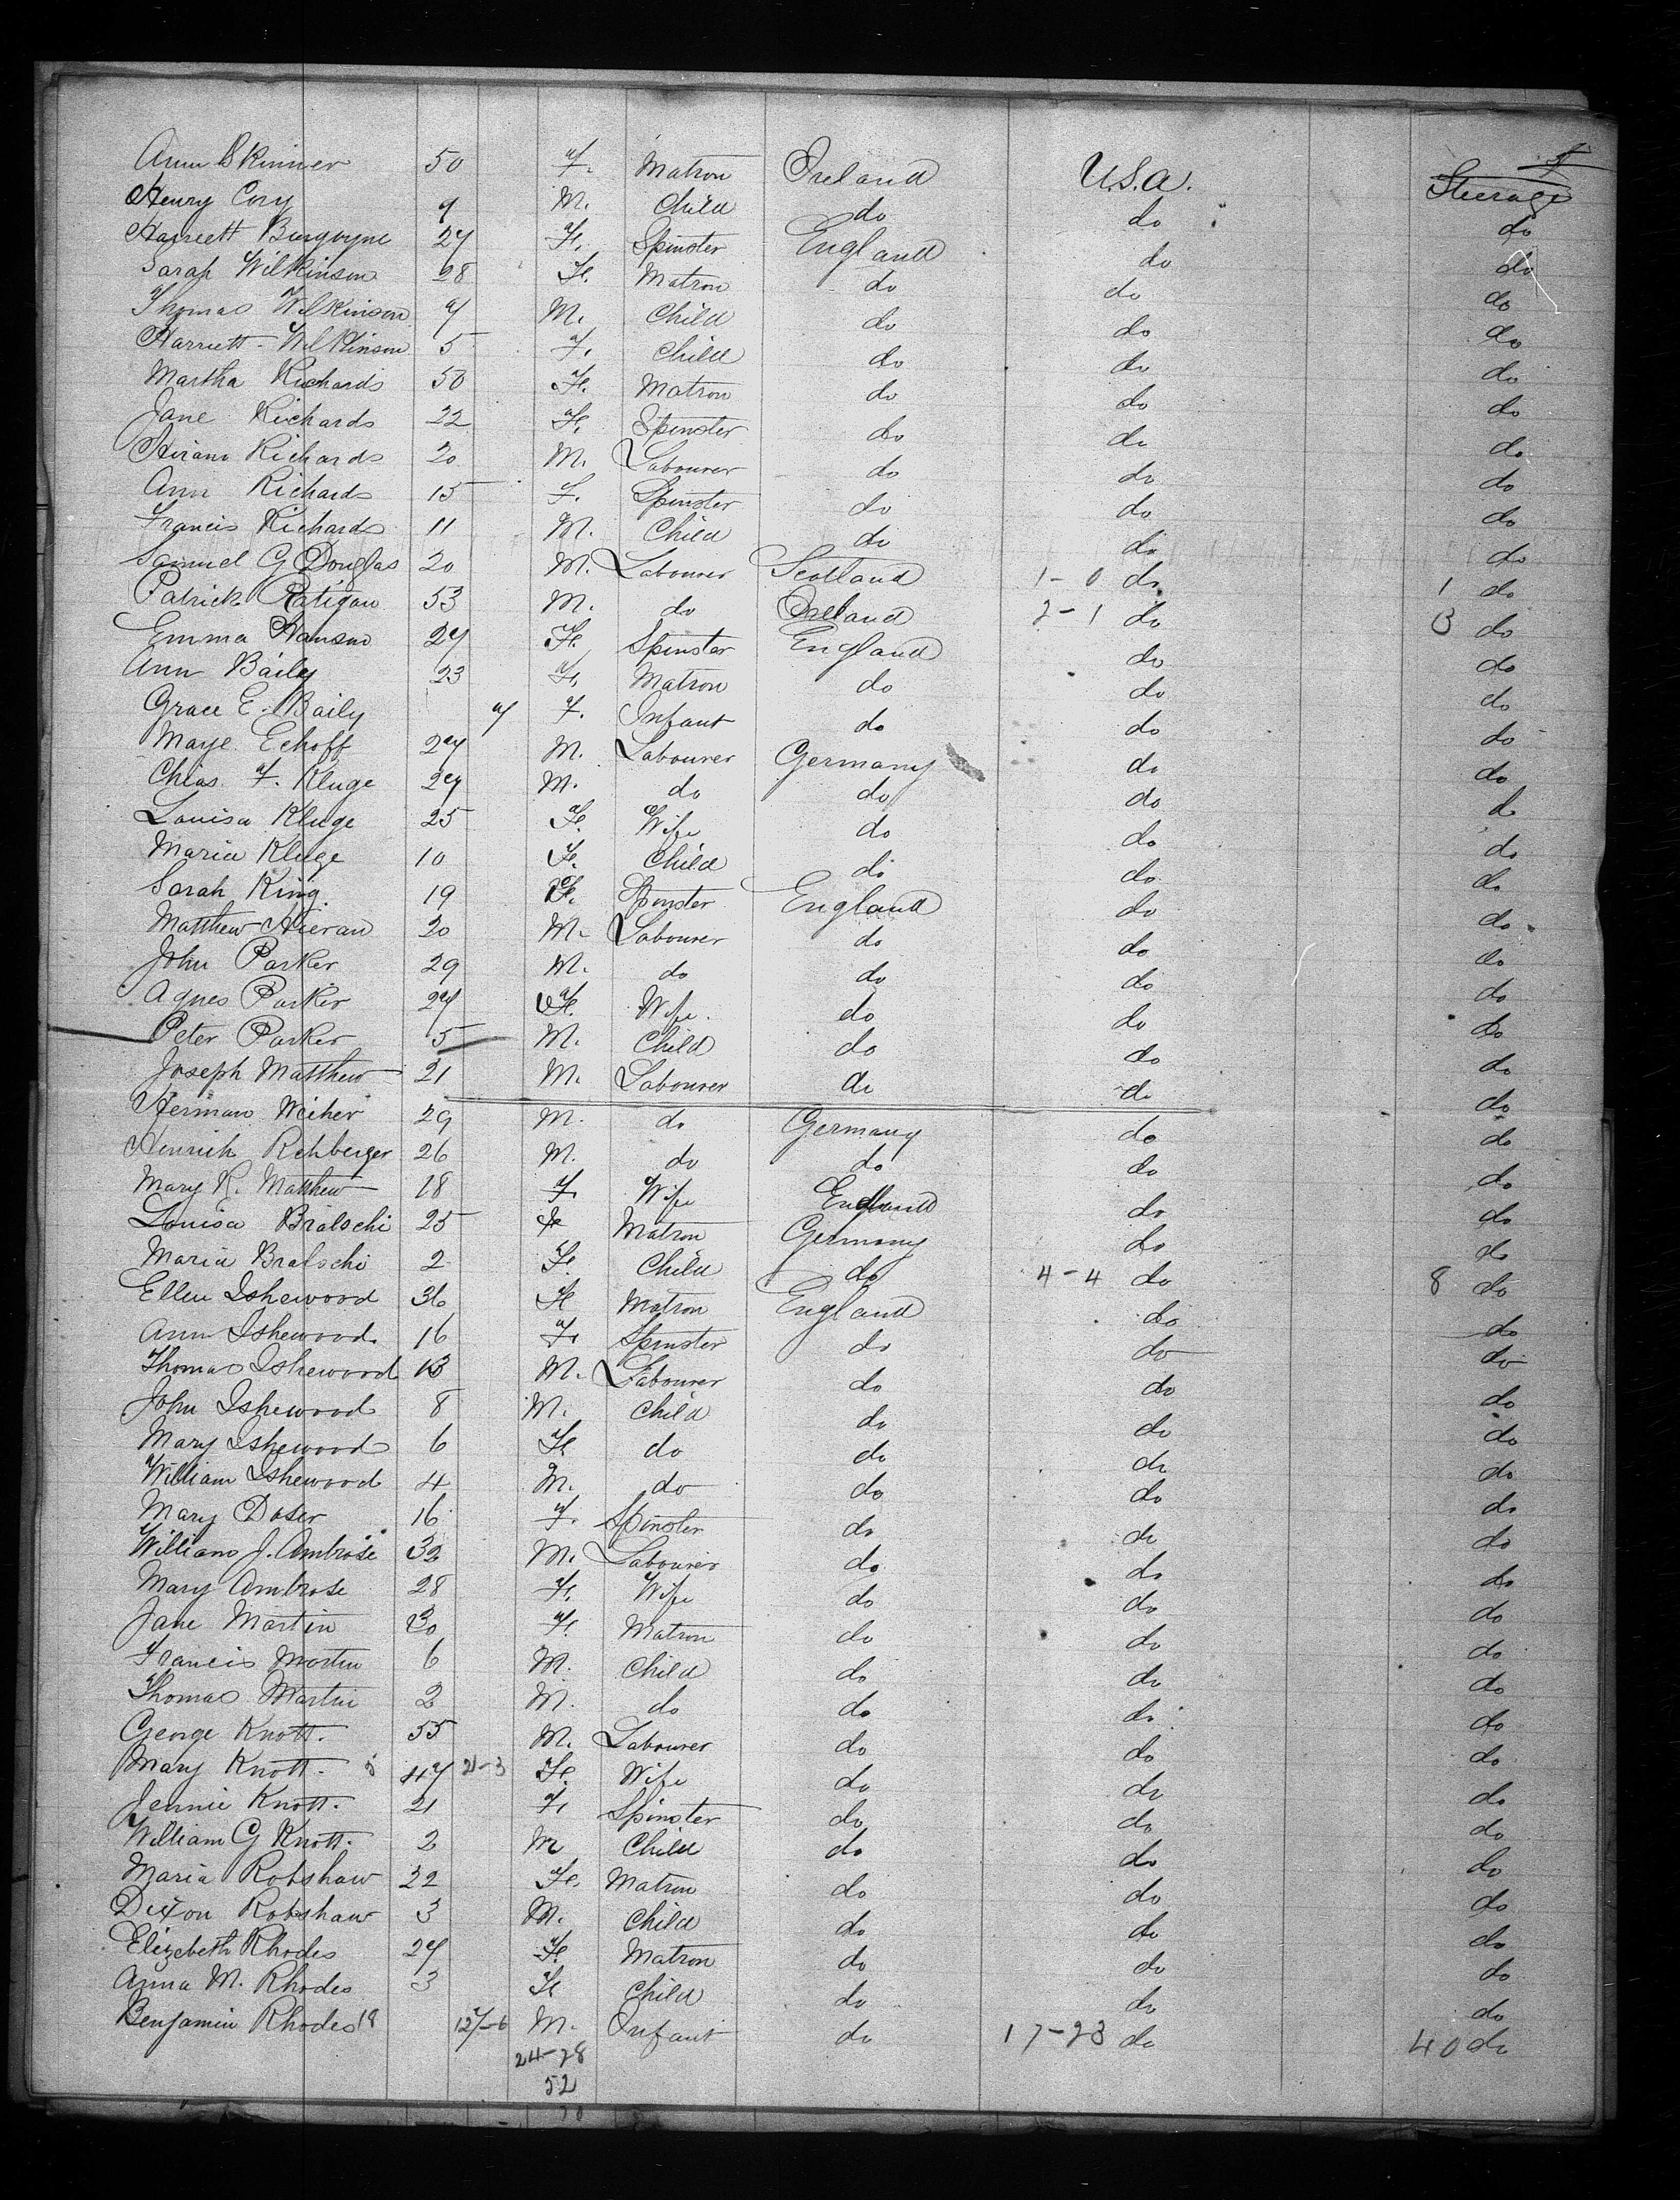 Ann Skinner 50 F. Matron Ireland U.S.A. Steerage
Henry Cory 9 M. Child do do do
Harriett Burgoyne 27 F. Spinster England do do
Sarah Wilkinson 28 F. Matron do do do
Thomas Wilkinson 7 M. Child do do do
Harriett Wilkinson 5 F. Child do do do
Martha Richards 50 F. Matron do do do
Jane Richards 22 F. Spinster do do do
Hiram Richards 20 M. Labourer do do do
Ann Richards 15 F. Spinster do do do
Francis Richards 11 M. Child do do do
Samuel G Douglas 20 M. Labourer Scotland 1-0 do 1 do
Patrick Ratigan 53 M. do Ireland 2-1 do 3 do
Emma Hanson 27 F. Spinster England do do
Ann Baily 23 F. Matron do do do
Grace E. Baily 7 F. Infant do do do
Maye Echoff 27 M. Labourer Germany do do
Chas. F. Kluge 27 M. do do do do
Louisa Kluge 25 F. Wife do do do
Maria Kluge 10 F. Child do do do
Sarah King. 19 F. Spinster England do do
Matthew Hieran 20 M. Labourer do do do
John Parker 29 M. do do do do
Agnes Parker 27 F. Wife. do do do
Peter Parker 5 M. Child do do do
Joseph Matthew 21 M. Labourer do do do
Herman Weiher 29 M. do Germany do do
Henrich Rehberger 26 M. do do do do
Mary R. Matthew 18 F. Wife England do do
Louisa Bralschi 25 F Matron Germany do do
Maria Bralschi 2 F. Child do 4-4 do 8 do
Ellen Ishewood 36 F Matron England do do
Ann Ishewood 16 F. Spinster do do do
Thomas Ishewood 13 M. Labourer do do do
John Ishewood 8 M. Child do do do
Mary Ishewood 6 F. do do do do
William Ishewood 4 M. do do do do
Mary Doser 16 F. Spinster do do do
William J. Ambrose 32 M. Labourer do do do
Mary Ambrose 28 F. Wife do do do
Jane Martin 30 F. Matron do do do
Francis Martin 6 M. Child do do do
Thomas Martin 2 M. do do do do
George Knott. 55 M. Labourer do do do
Mary Knott. 5 47 21-3 F. Wife do do do
Jennie Knott. 21 F. Spinster do do do
William G Knott. 2 M Child do do do
Maria Robshaw 22 F. Matron do do do
Dixon Robshaw 3 M. Child do do do
Elizabeth Rhodes 27 F. Matron do do do
Anna M. Rhodes 3 F Child do do do
Benjamin Rhodes 18 M. Infant do 17-23 do 40 do
24-28
52